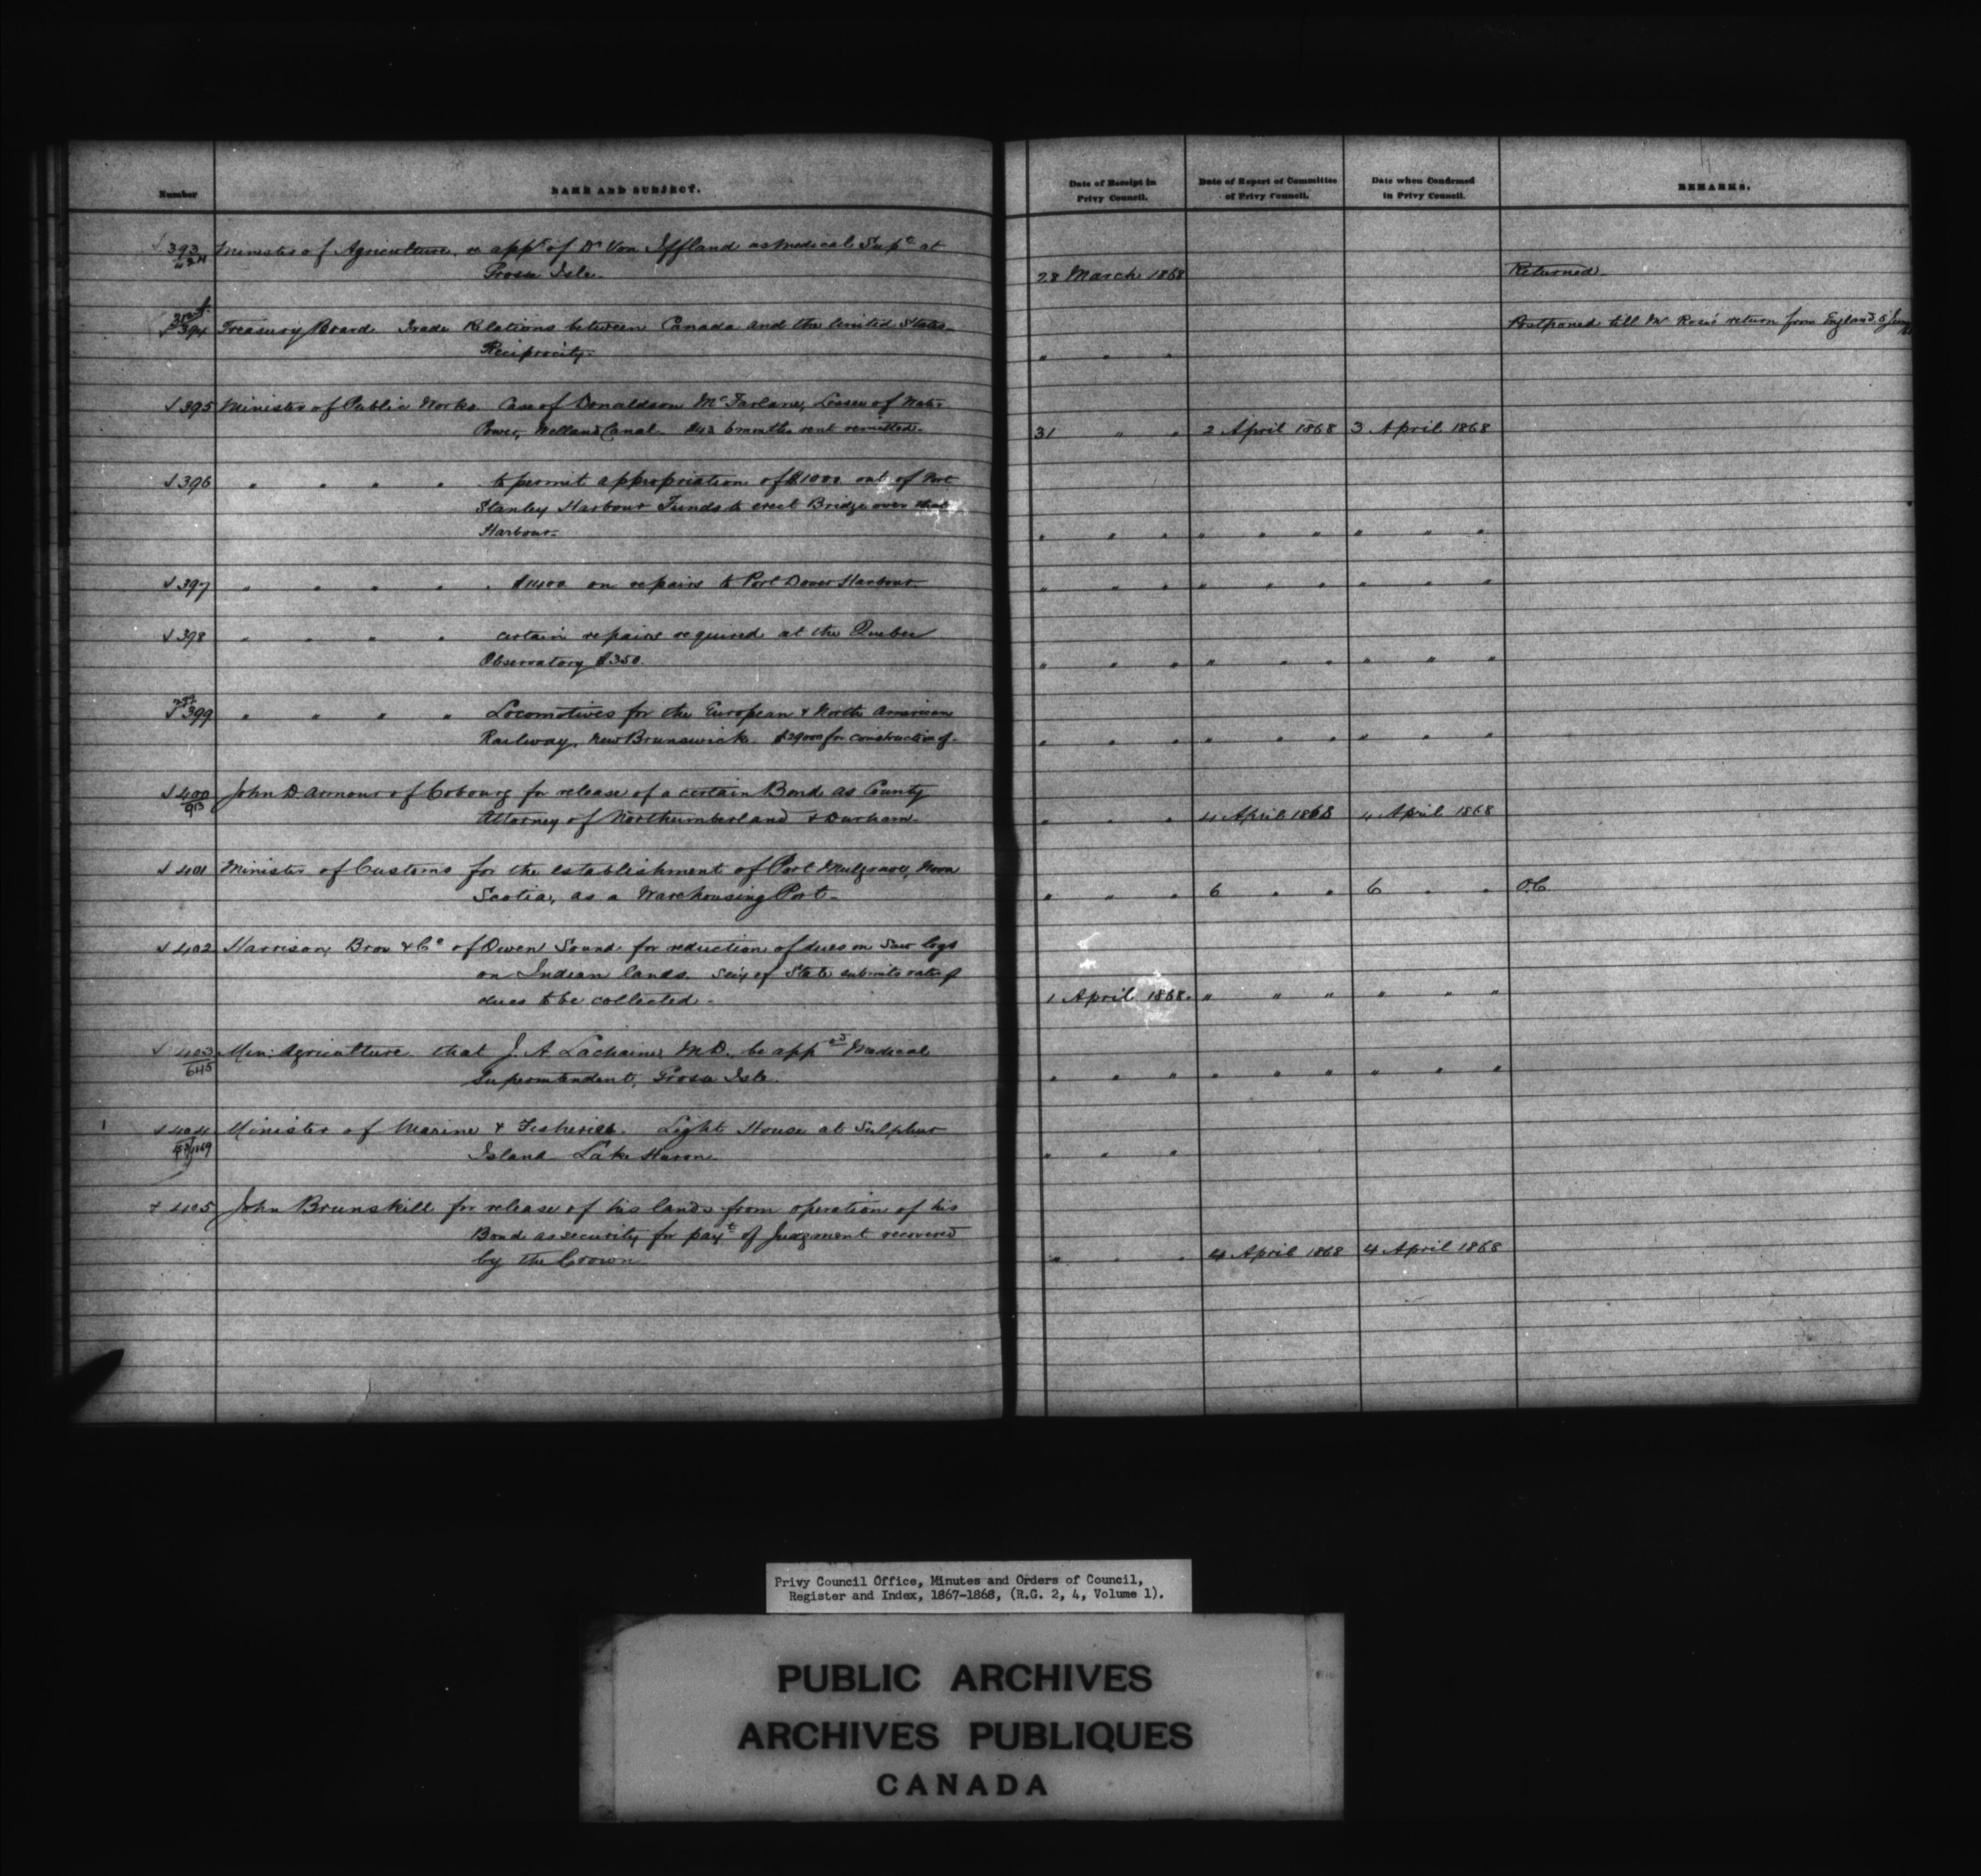 Number
NAME AND SUBJECT.
Date of Receipt in
Privy Council.
Date of Report of Committee
of Privy Council.
Date when Confirmed
in Privy Council.
REMARKS.
393 Minister of Agriculture, re appt of Dr Von Iffland as Medical Supt at
Grosse Isle.
28 March 1868
Returned
394 Treasury Board Trade Relations between Canada and the United States
Reciprocity.
" " "
Postponed till Mr Rose's return from England 5 June
395 Minister of Public Works. Case of Donaldson McFarlane, Lessee of Water
Power, Welland Canal. 6 months rent remitted.
31 " " 2 April 1868 3 April 1868
396 " " " " to permit appropriation of $1000 out of Port
Stanley Harbour Funds to erect Bridge over that
Harbour.
" " " " " " " " "
397 " " " " " $1400 on repairs to Port Dover Harbour
" " " " " " " " "
398 " " " " certain repairs required at the Quebec
Observatory $350.
" " " " " " " " "
399 " " " " Locomotives for the European & North American
Railway, New Brunswick. $29000 for construction of.
" " " " " " " " "
400 John D Armour of Cobourg for release of a certain Bond as County
913
Attorney of Northumberland & Durham.
" " " 4 April 1868 4 April 1868
401 Minister of Customs for the establishment of Port Mulgrave, Nova
Scotia, as a Warehousing Port.
" " " 6 " " 6 " " O.C.
402 Harrison, Bros & Co of Owen Sound for reduction of dues on Saw logs
on Indian lands. Secy of State submits rate of
dues to be collected.
1 April 1868. " " " " " "
403 Min: Agriculture that J. A Lachaine, M.D. be apped Medical
645
Superintendent, Grosse Isle.
" " " " " " " " "
404 Minister of Marine & Fisheries. Light House at Sulphur
Island Lake Huron
" " "
405 John Brunskill for release of his lands from operation of his
Bond as security for payt of Judgment recovered
by the Crown
" " " 4 April 1868 4 April 1868
Privy Council Office, Minutes and Orders of Council,
Register and Index, 1867-1868, (R.G. 2, 4, Volume 1).
PUBLIC ARCHIVES
ARCHIVES PUBLIQUES
CANADA